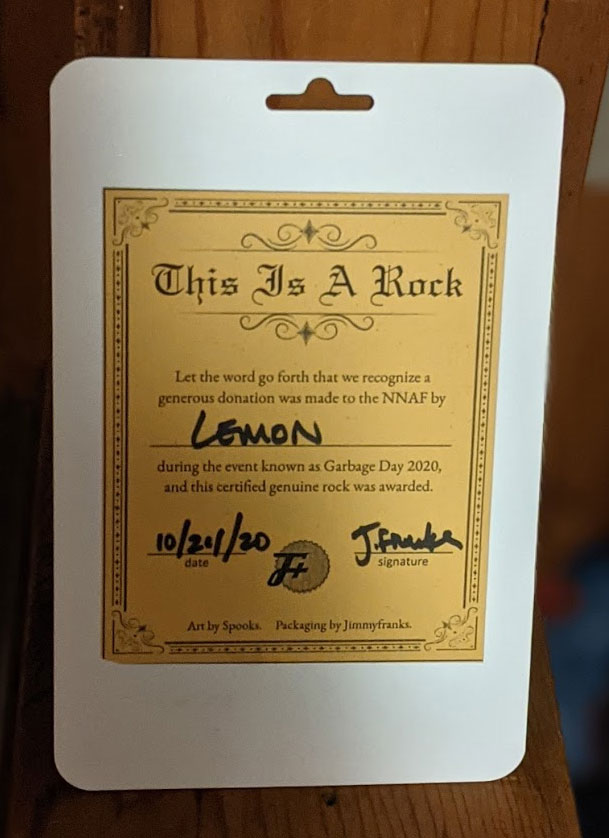 This Is A Rock
Let the word go forth that we recognize a
generous donation was made to the NNAF by
LEMON
during the event known as Garbage Day 2020,
and this certified genuine rock was awarded.
10/21/20
J.Franks
date
signature
Art by Spooks. Packaging by Jimmyfranks.